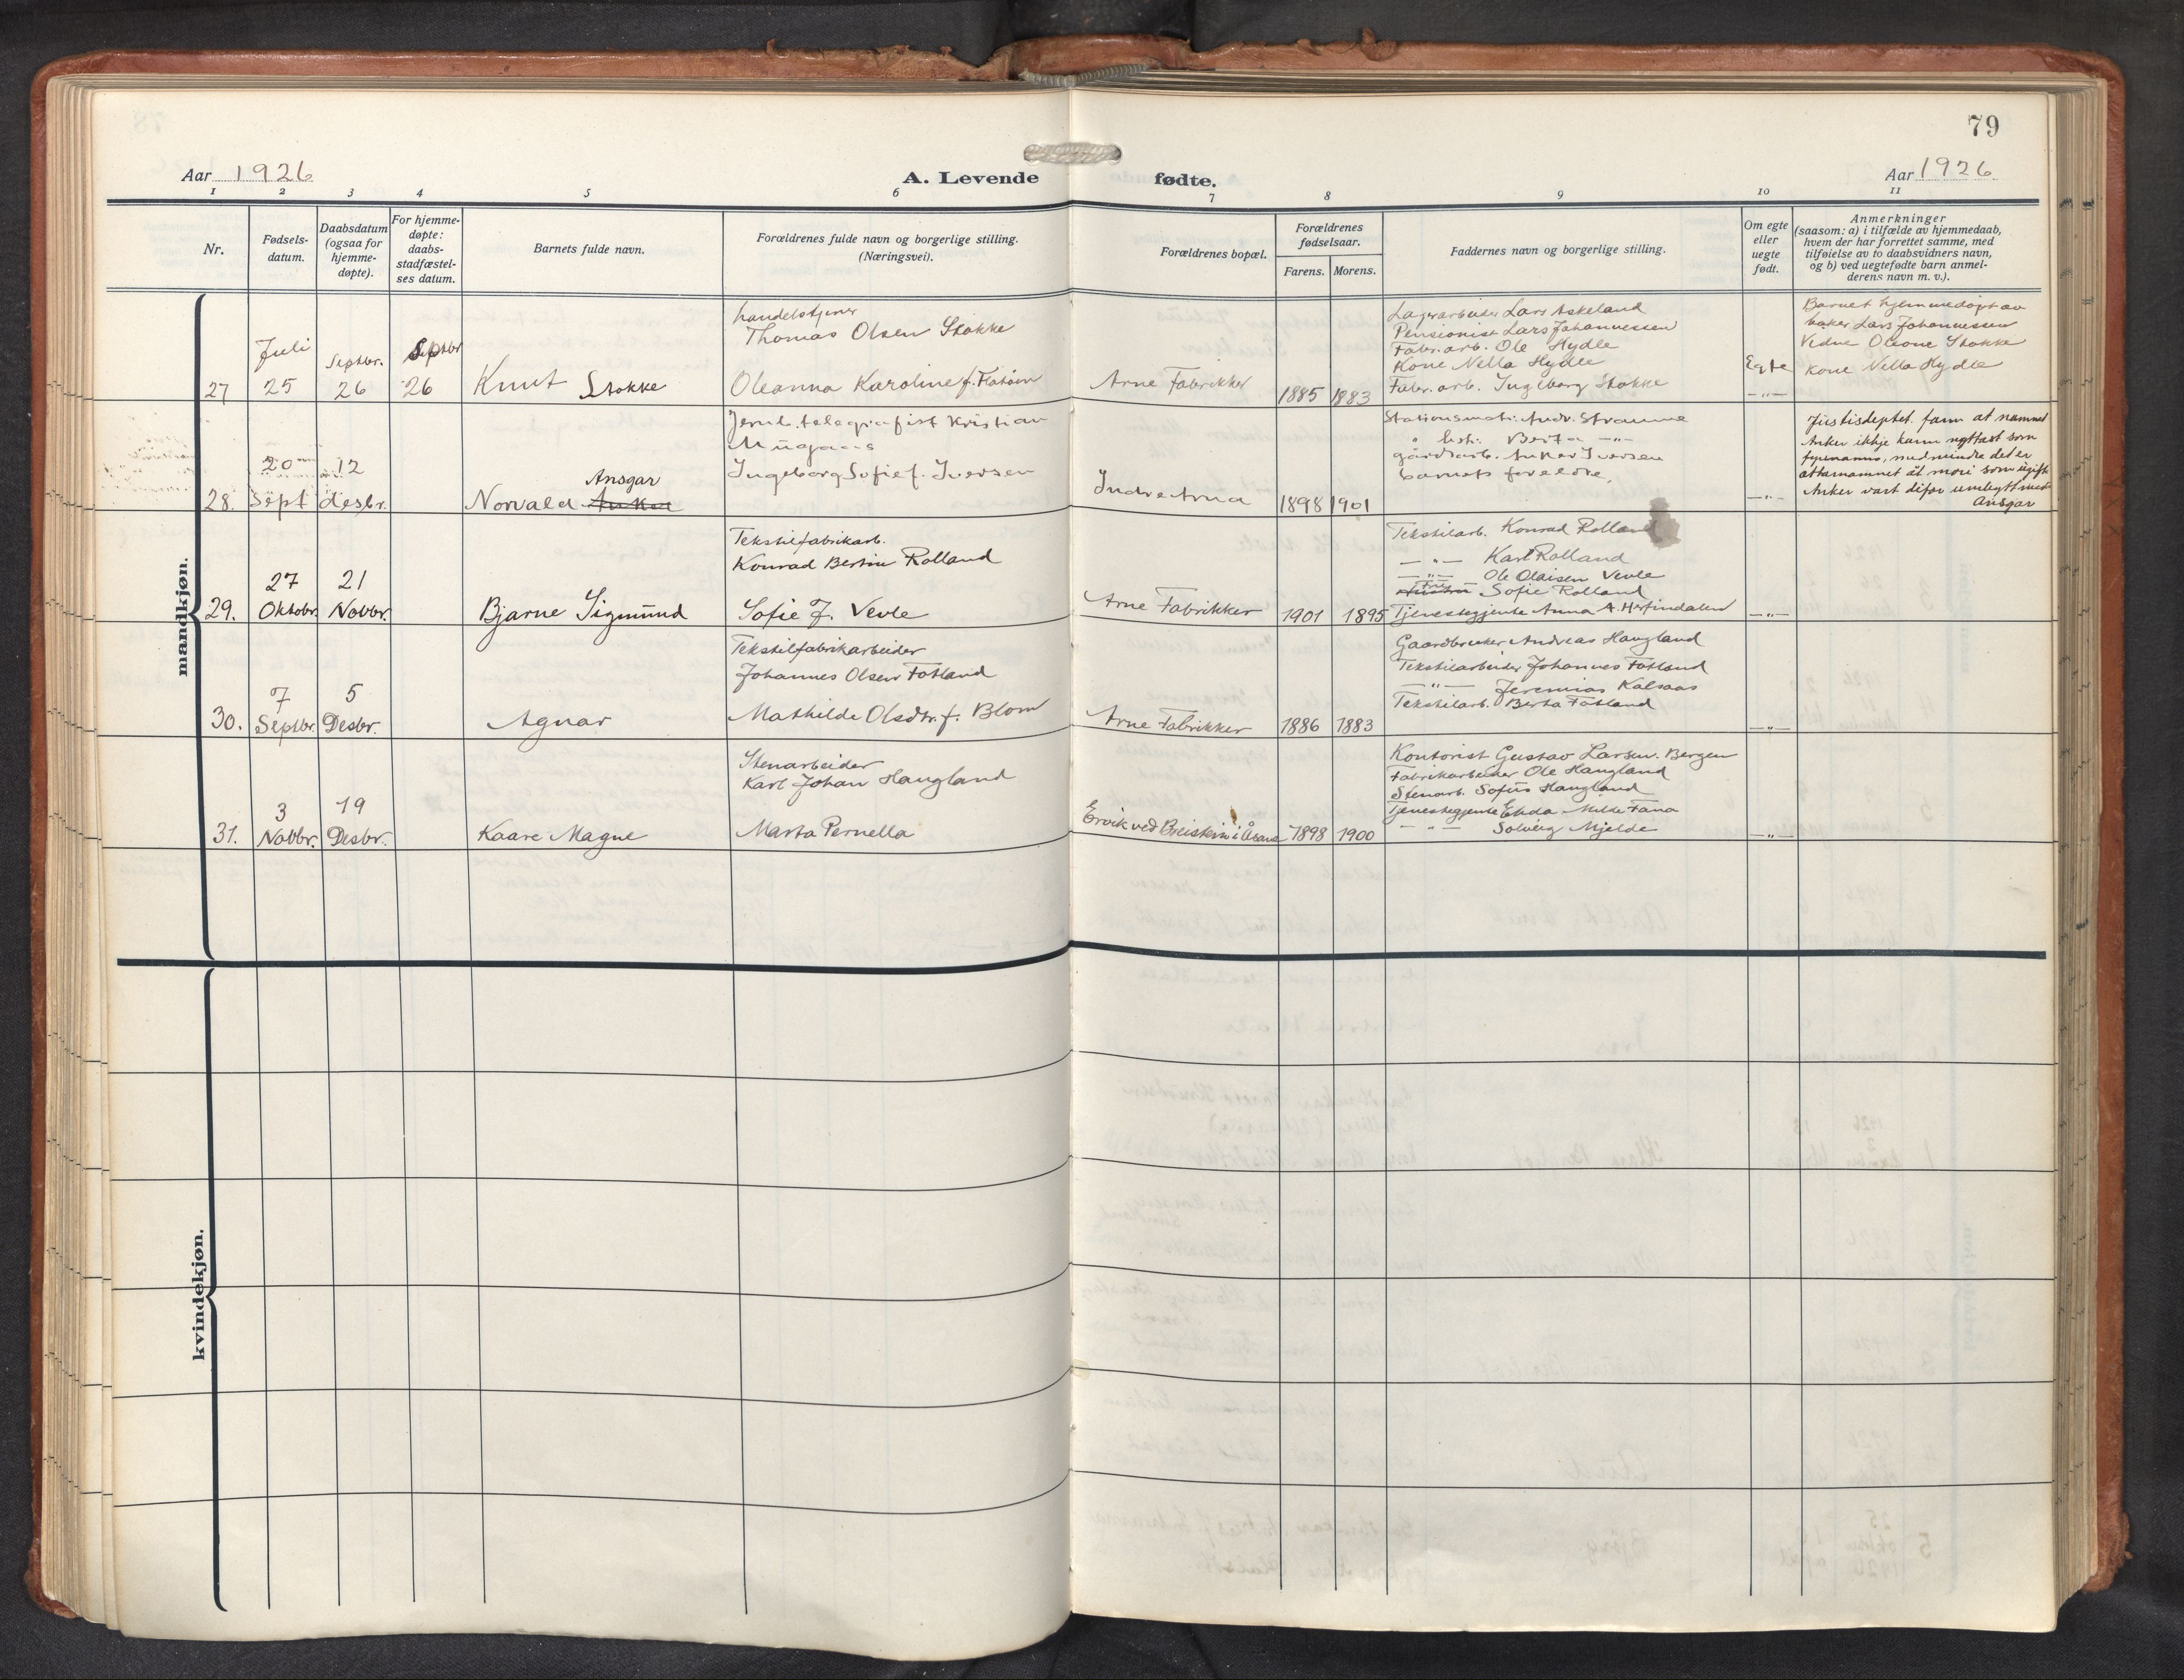 79
Aar 1926
A. Levende fødte.
Aar 1926.
1 2 3 4 5 6 7 8 9 10 11
Nr.
Fødsels-
datum.
Daabsdatum
(ogsaa for
hjemme-
døpte).
For hjemme-
døpte:
daabs-
stadfæstel-
ses datum.
Barnets fulde navn.
Forældrenes fulde navn og borgerlige stilling.
(Næringsvei).
Forældrenes bopæl.
Forældrenes
fødselsaar.
Farens. Morens.
Faddernes navn og borgerlige stilling.
Om egte
eller
uegte
født.
Anmerkninger
(saasom: a) i tilfælde av hjemmedaab,
hvem der har forrettet samme, med
tilføielse av to daabsvidners navn,
og b) ved uegtefødte barn anmel-
derens navn m. v.).
mandkjøn.
27
Juli
25
Septbr.
26
Septbr
26
Knut Stokke
Thomas Olsen Stokke
Oleanna Karoline f.
Arne Fabrikker
1885 1883
Lagerarbeider Lars Askeland
Pensionist Lars Johannessen
Fabr.arb. Ole Hydle
Kone Nella Hydle
Fabr.arb. Ingeborg Stokke
Egte
-"-
Barnet hjemmedøpt av
baker Lars Johannessen
Vidne Oleone Stokke
Kone Nella Hydle
28.
20
Sept
12
desbr.
Ansgar
Norvald Anker
Jernb.telegrafist Kristian
Ingeborg Sofie f. Iversen
Indre Arna
1898 1901
Andr. Straume
Berta -"-
gårdsarb. Anker Iversen
barnets foreldre.
-"-
Justisdeptet. fann at namnet
Anker ikkje kann nyttast som
fyrenamn, medmindre det er
ættarnamnet åt mori som ugift
Anker vart difor umbytt med
Ansgar
29.
27
Oktobr.
21
Novbr.
Bjarne Sigmund
Tekstilfabrikarb.
Konrad Bertin Rolland
Sofie f. Vevle
Arne Fabrikker
1901 1895
Tekstilarb. Konrad Rolland
-"- Karl Rolland
-"- Ole Olaisen Vevle
Fru Sofie Rolland
Tjenestegjente Anna A. Herfindalen
-"-
30.
7
Septbr.
5
Desbr.
Agnar
Tekstilfabrikarbeider
Johannes Olsen Fotland
Mathilde Olsdtr. f. Blom
Arne Fabrikker
1886 1883
Gaardbruker Andreas Haugland
Tekstilarbeider Johannes Fotland
-"- Jeremias Kalsaas
Tekstilarb. Berta Fotland
-"-
31.
3
Novbr.
19
Desbr.
Kaare Magne
Stenarbeider
Karl Johan Haugland
Marta Pernella
Ervik ved Breistein i Åsane
1898 1900
Kontorist Gustav Larsen. Bergen
Fabrikarbeider Ole Haugland
Stenarb. Sofus Haugland
Tjenestegjente Milde Fana
-"- Solveig Mjelde
-"-
kvindekjøn.